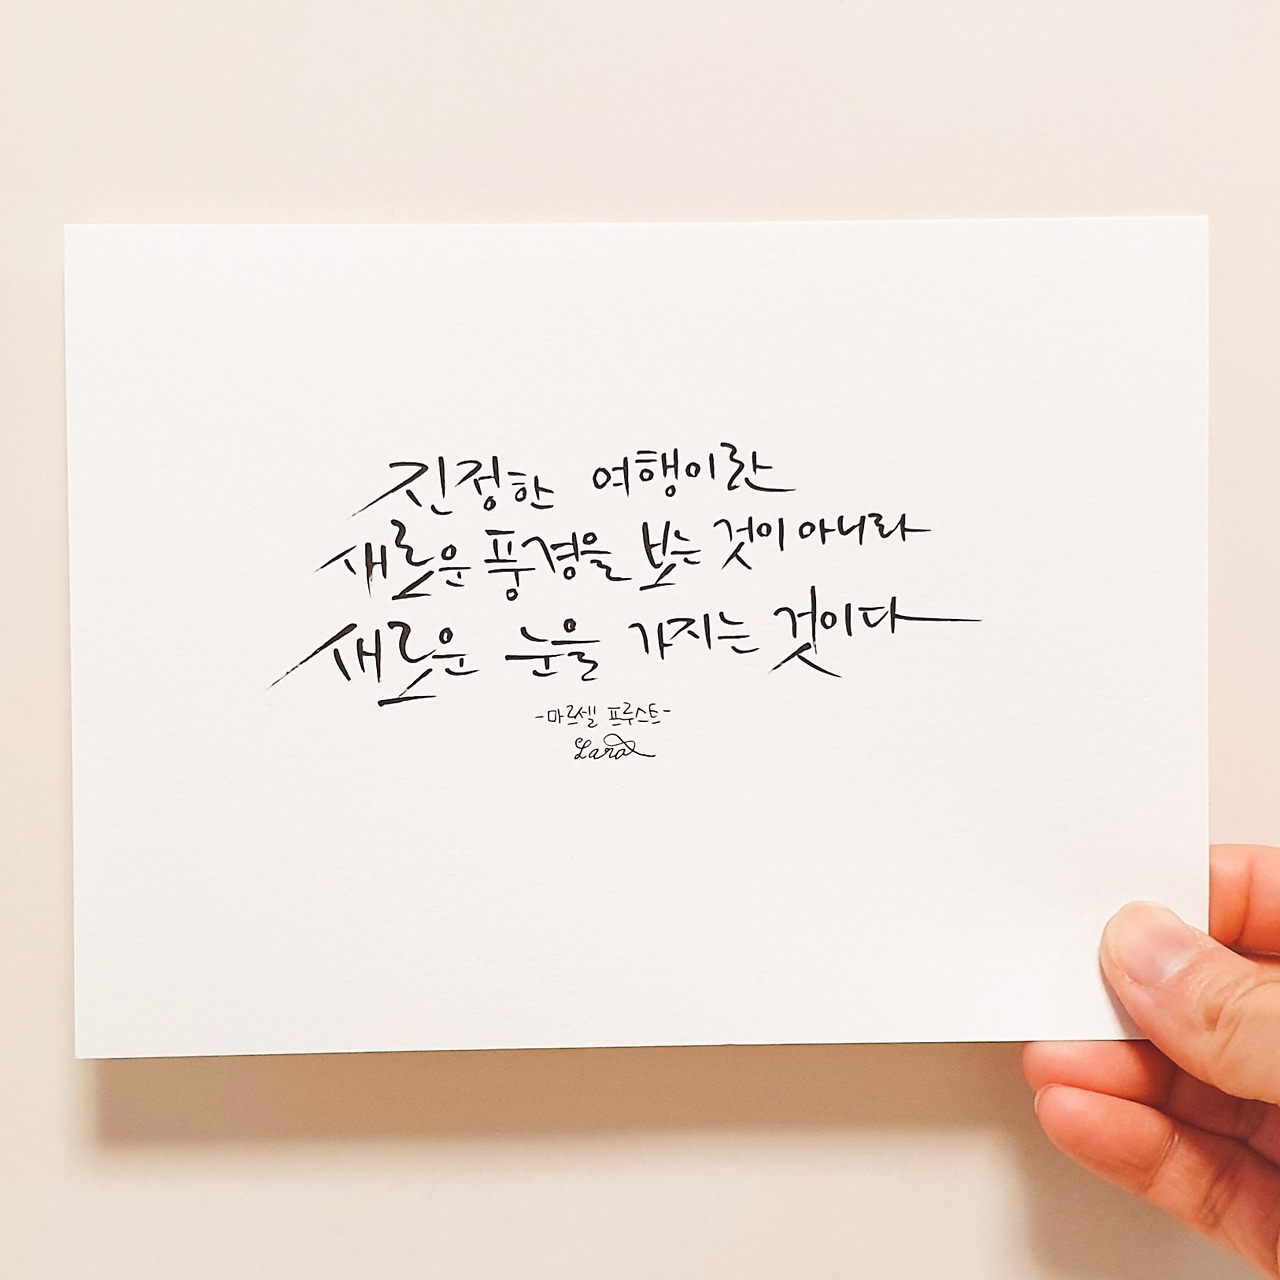 진정한 여행이란
새로운 풍경을 보는 것이 아니라
새로운 눈을 가지는 것이다
-마르셀 프루스트-
Lara